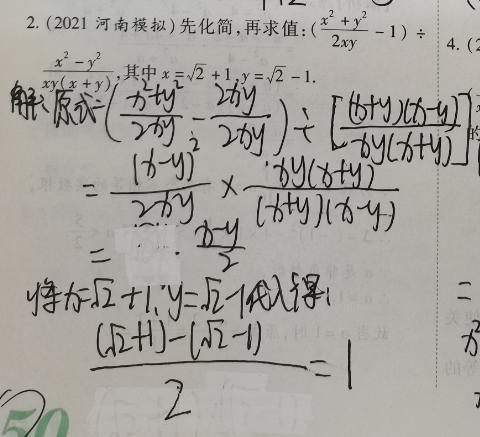 2. (2021 河南模拟) 先化简,再求值: (\frac{x^2+y^2}{2xy} - 1) ÷
\frac{x^2-y^2}{xy(x+y)}, 其中 x=√2+1, y=√2-1.
4. (2
解: 原式=(\frac{x^2+y^2}{2xy} - \frac{2xy}{2xy}) ÷ [\frac{(x+y)(x-y)}{xy(x+y)}]
= \frac{(x-y)^2}{2xy} × \frac{xy(x+y)}{(x+y)(x-y)}
= \frac{x-y}{2}
将x=√2+1, y=√2-1代入得:
\frac{(√2+1)-(√2-1)}{2} = 1
50